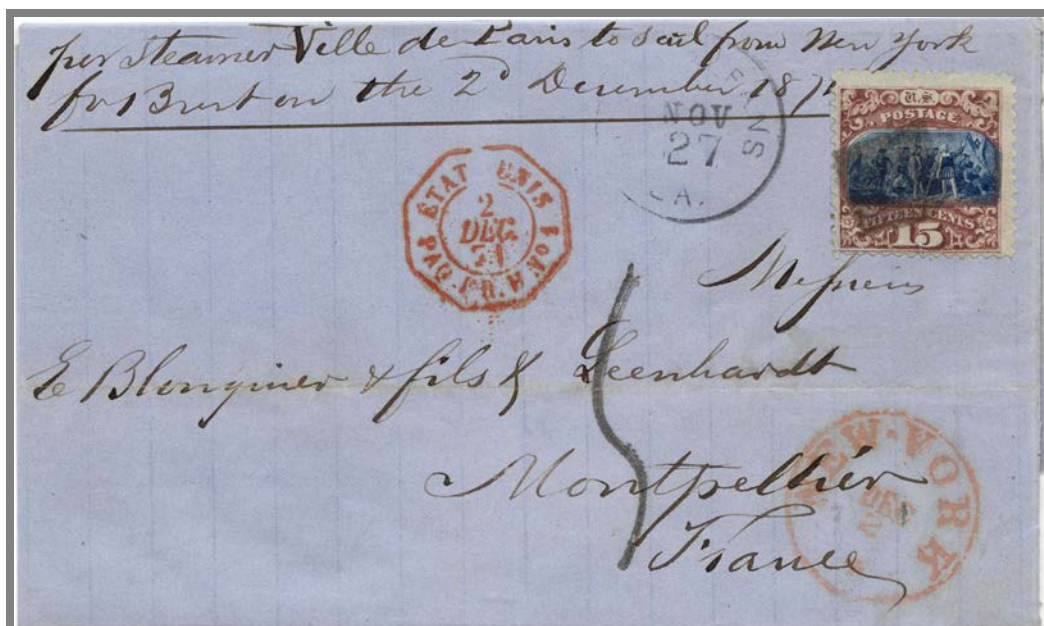 per Steamer Ville de Paris to sail from New York
for Brest on the 2d December 1871
NS
NOV
27
LA.
U.S.
POSTAGE
FIFTEEN CENTS
15
ETAT UNIS
2
DEC.
71
Messieurs
E Blouquier & fils & Leenhardt
Montpellier
France
NEW-YORK
DEC
2